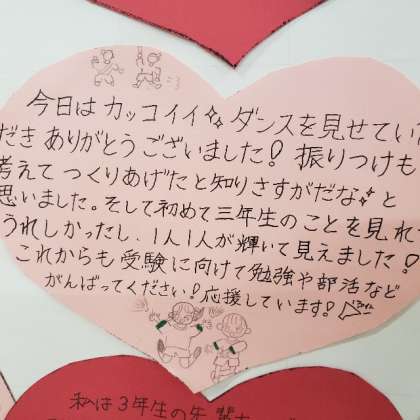 今日はカッコイイ✨ダンスを見せてい
だきありがとうございました！振りつけも
考えてつくりあげたと知りさすがだな✨と
思いました。そして初めて三年生のことを見れ
うれしかったし、1人1人が輝いて見えました！
これからも受験に向けて勉強や部活など
がんばってください！応援しています！
私は3年生の先輩